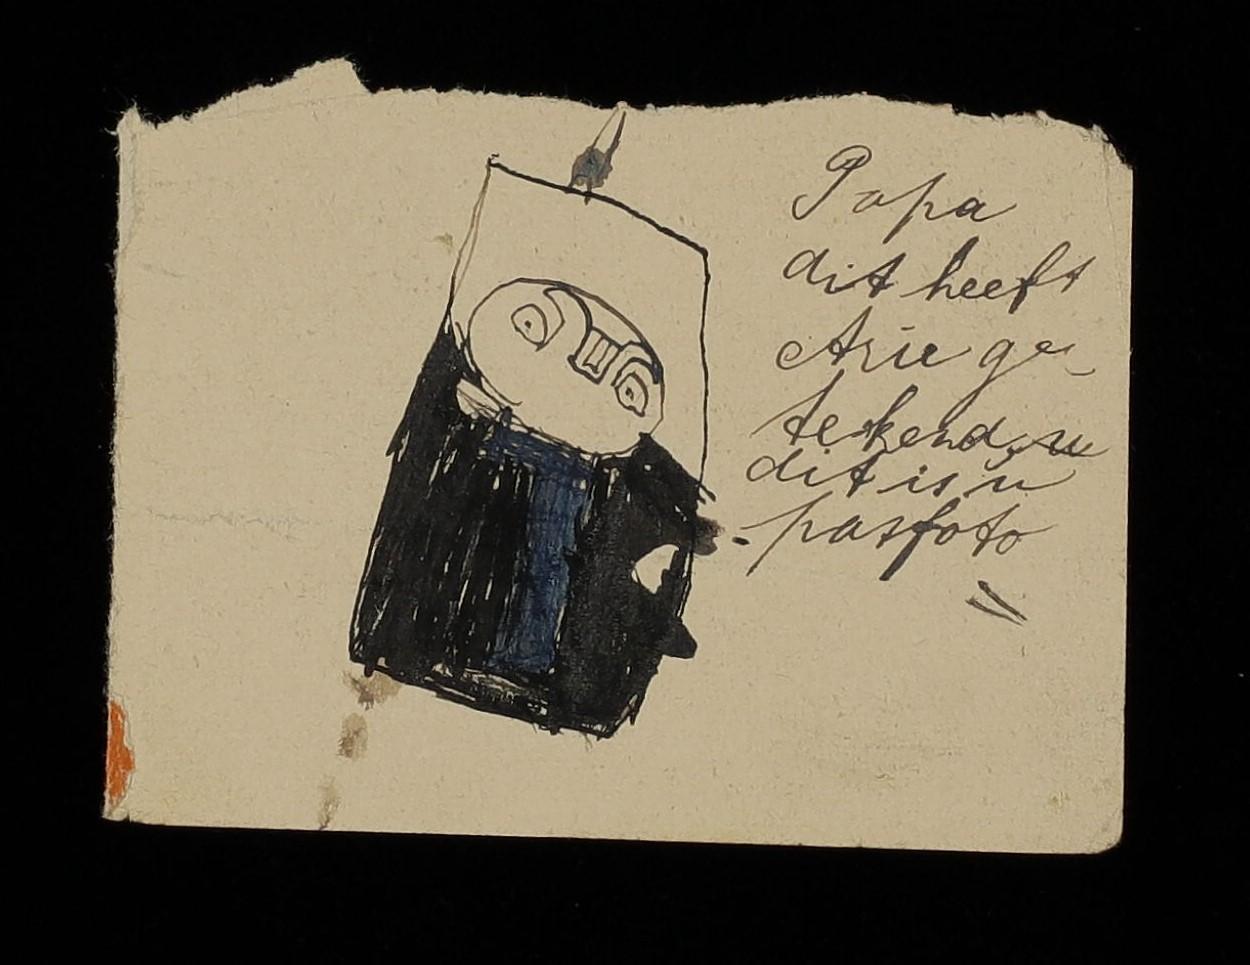 Papa
dit heeft
Arie ge-
tekend,
dit is n
pasfoto